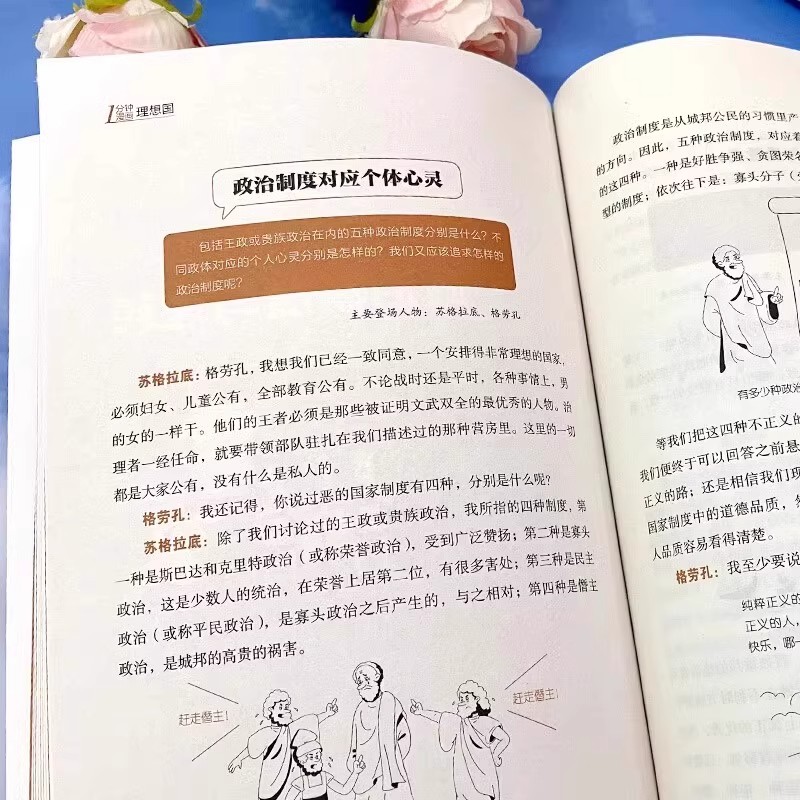 1分钟漫画 理想国
政治制度对应个体心灵
包括王政或贵族政治在内的五种政治制度分别是什么？不
同政体对应的个人心灵分别是怎样的？我们又应该追求怎样的
政治制度呢？
主要登场人物：苏格拉底、格劳孔
苏格拉底：格劳孔，我想我们已经一致同意，一个安排得非常理想的国家，
必须妇女、儿童公有，全部教育公有。不论战时还是平时，各种事情上，男
的女的一样干。他们的王者必须是那些被证明文武双全的最优秀的人物。治
理者一经任命，就要带领部队驻扎在我们描述过的那种营房里。这里的一切
都是大家公有，没有什么是私人的。
格劳孔：我还记得，你说过恶的国家制度有四种，分别是什么呢？
苏格拉底：除了我们讨论过的王政或贵族政治，我所指的四种制度，第
一种是斯巴达和克里特政治（或称荣誉政治），受到广泛赞扬；第二种是寡头
政治，这是少数人的统治，在荣誉上居第二位，有很多害处；第三种是民主
政治（或称平民政治），是寡头政治之后产生的，与之相对；第四种是僭主
政治，是城邦的高贵的祸害。
赶走僭主！
赶走僭主！
政治制度是从城邦公民的习惯里产
的方向。因此，五种政治制度，对应着
的这四种。一种是好胜争强、贪图荣名
型的制度；依次往下是：寡头分子（
有多少种政治
等我们把这四种不正义的
我们便终于可以回答之前悬
正义的路；还是相信我们现
国家制度中的道德品质，
人品质容易看得清楚。
格劳孔：我至少要说
纯粹正义的
正义的人，
快乐，哪一